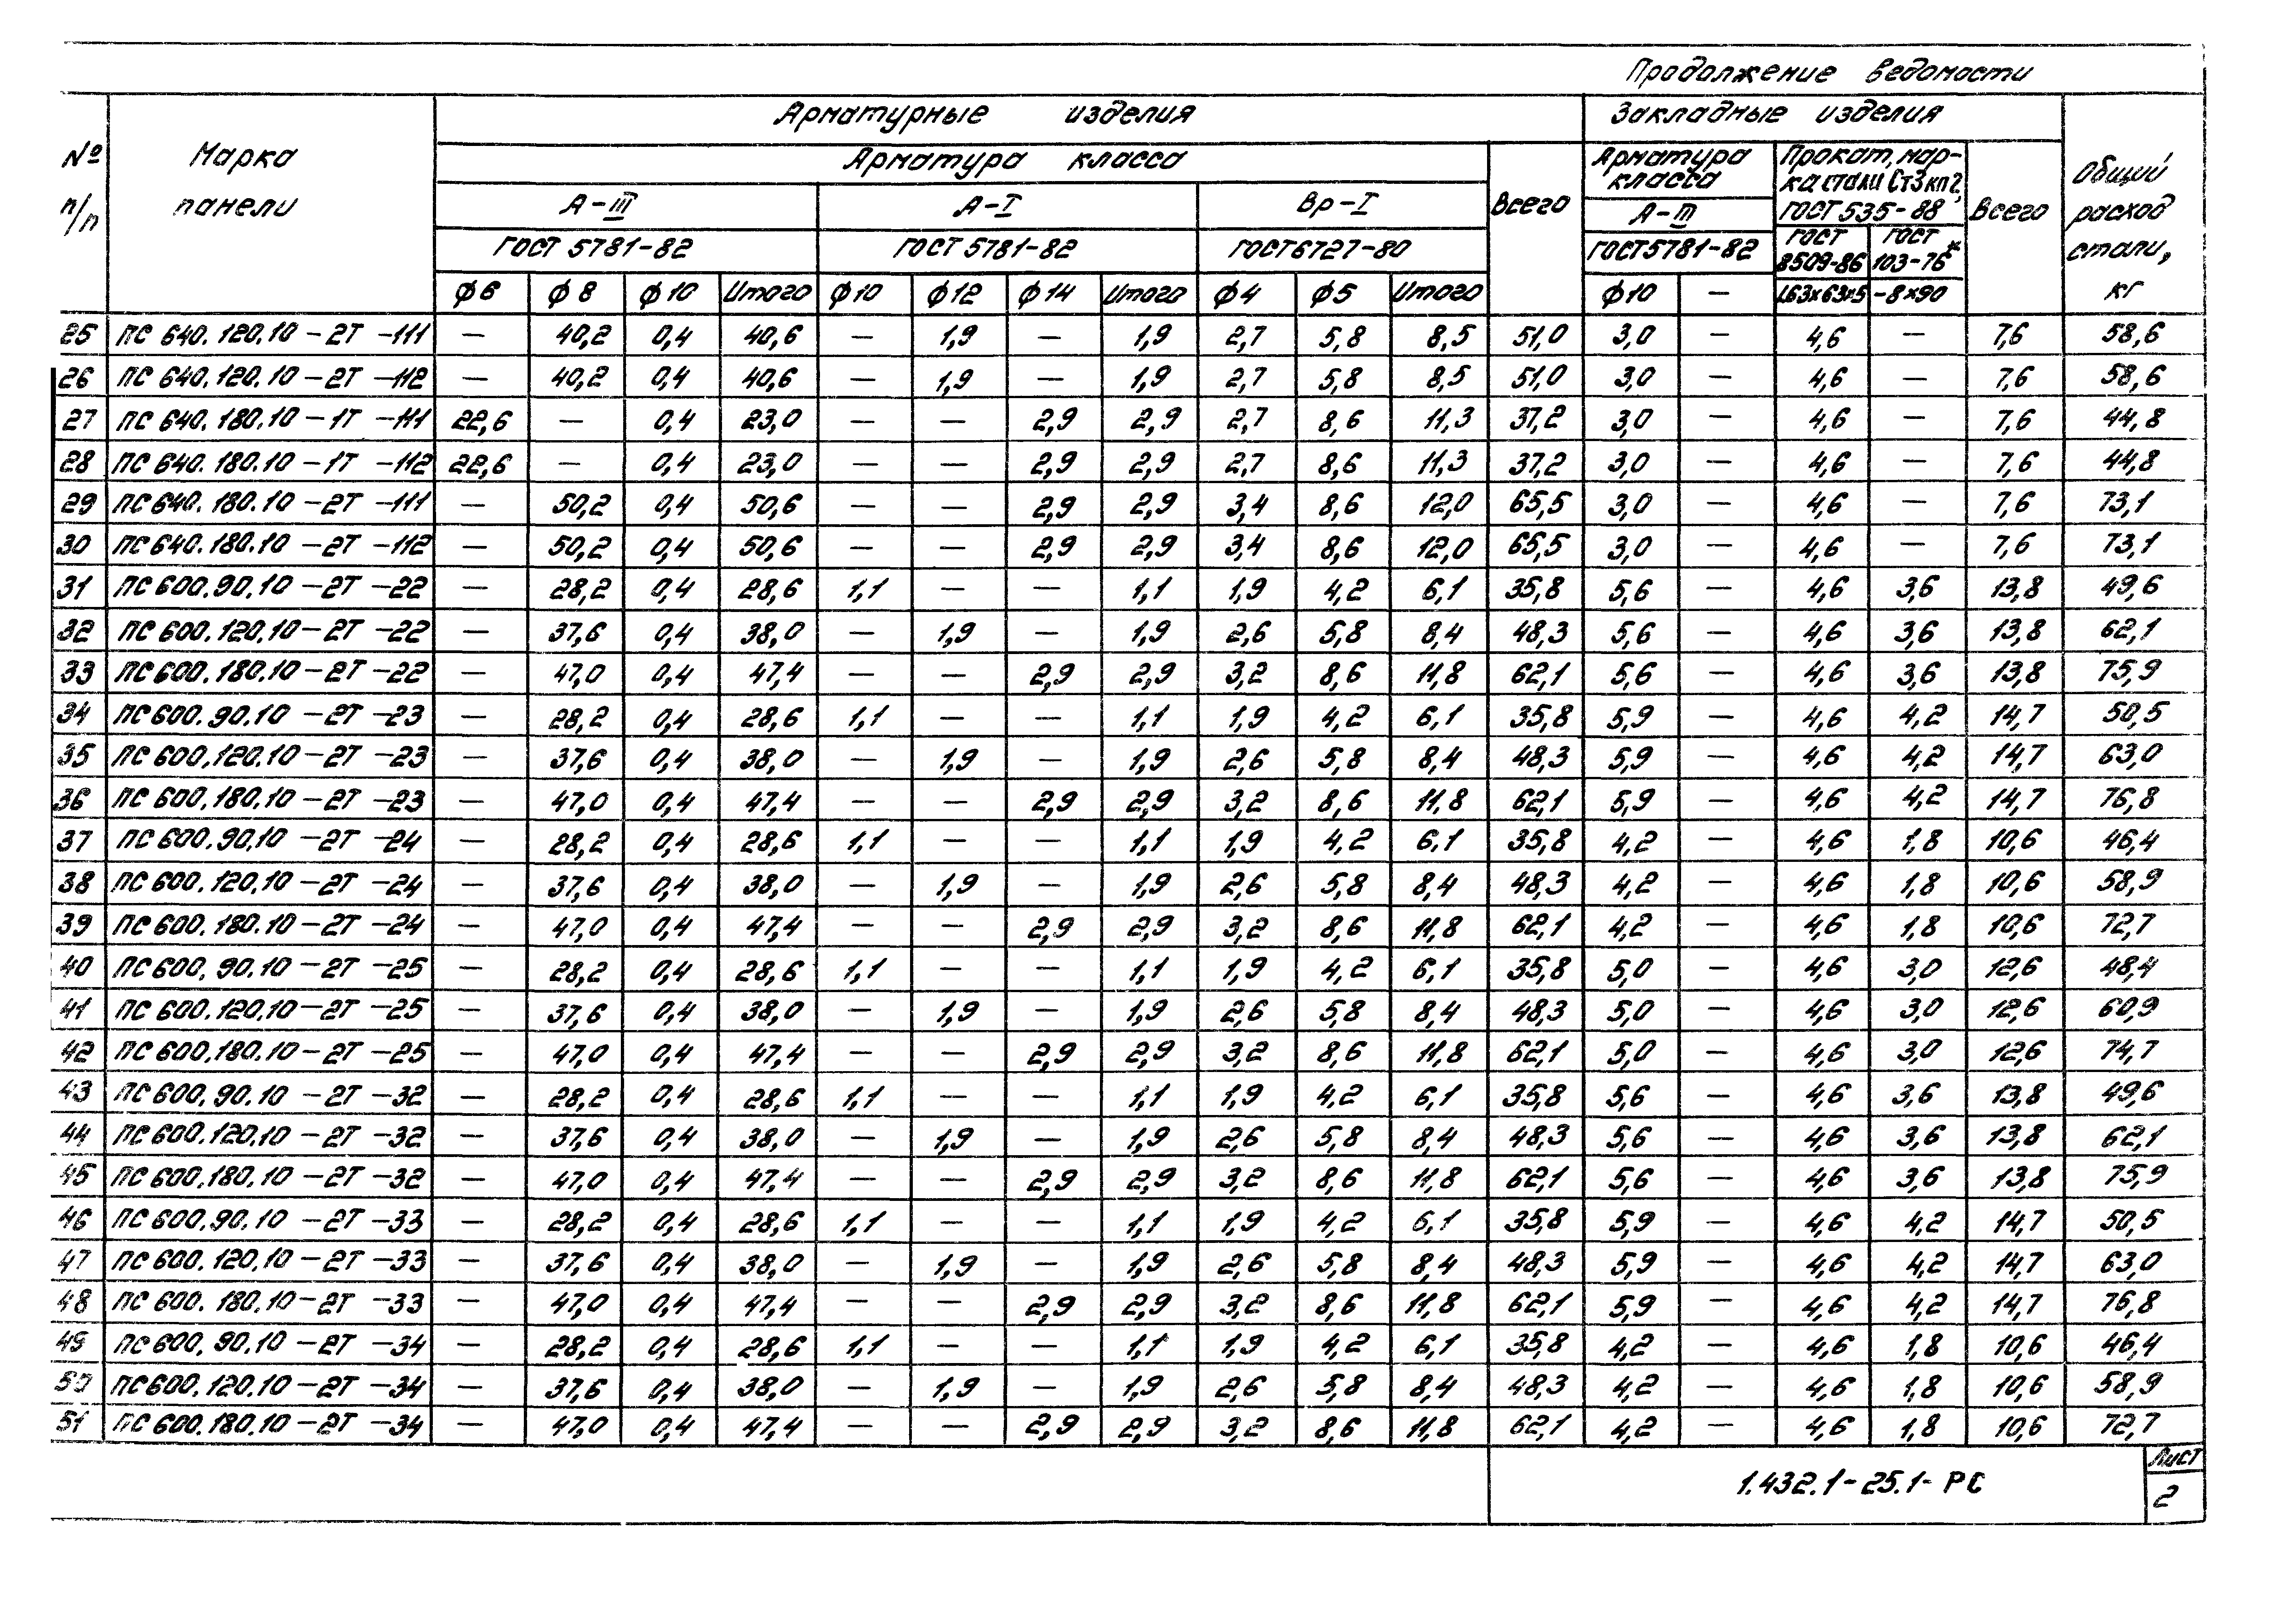 Продолжение ведомости
№ п/п Марка панели Арматурные изделия Закладные изделия Общий расход стали, кг
Арматура класса Всего Арматура класса Прокат, марка стали Ст3кп2, ГОСТ 535-88 Всего
А-III А-I Вр-I А-III
ГОСТ 5781-82 ГОСТ 5781-82 ГОСТ 6727-80 ГОСТ 5781-82 ГОСТ 8509-86 ГОСТ 103-76*
ф6 ф8 ф10 Итого ф10 ф12 ф14 Итого ф4 ф5 Итого ф10 — L63×63×5 -8×90
25 ПС 640.120.10-2Т-111 — 40,2 0,4 40,6 — 1,9 — 1,9 2,7 5,8 8,5 51,0 3,0 — 4,6 — 7,6 58,6
26 ПС 640.120.10-2Т-112 — 40,2 0,4 40,6 — 1,9 — 1,9 2,7 5,8 8,5 51,0 3,0 — 4,6 — 7,6 58,6
27 ПС 640.180.10-1Т-111 22,6 — 0,4 23,0 — — 2,9 2,9 2,7 8,6 11,3 37,2 3,0 — 4,6 — 7,6 44,8
28 ПС 640.180.10-1Т-112 22,6 — 0,4 23,0 — — 2,9 2,9 2,7 8,6 11,3 37,2 3,0 — 4,6 — 7,6 44,8
29 ПС 640.180.10-2Т-111 — 50,2 0,4 50,6 — — 2,9 2,9 3,4 8,6 12,0 65,5 3,0 — 4,6 — 7,6 73,1
30 ПС 640.180.10-2Т-112 — 50,2 0,4 50,6 — — 2,9 2,9 3,4 8,6 12,0 65,5 3,0 — 4,6 — 7,6 73,1
31 ПС 600.90.10-2Т-22 — 28,2 0,4 28,6 1,1 — — 1,1 1,9 4,2 6,1 35,8 5,6 — 4,6 3,6 13,8 49,6
32 ПС 600.120.10-2Т-22 — 37,6 0,4 38,0 — 1,9 — 1,9 2,6 5,8 8,4 48,3 5,6 — 4,6 3,6 13,8 62,1
33 ПС 600.180.10-2Т-22 — 47,0 0,4 47,4 — — 2,9 2,9 3,2 8,6 11,8 62,1 5,6 — 4,6 3,6 13,8 75,9
34 ПС 600.90.10-2Т-23 — 28,2 0,4 28,6 1,1 — — 1,1 1,9 4,2 6,1 35,8 5,9 — 4,6 4,2 14,7 50,5
35 ПС 600.120.10-2Т-23 — 37,6 0,4 38,0 — 1,9 — 1,9 2,6 5,8 8,4 48,3 5,9 — 4,6 4,2 14,7 63,0
36 ПС 600.180.10-2Т-23 — 47,0 0,4 47,4 — — 2,9 2,9 3,2 8,6 11,8 62,1 5,9 — 4,6 4,2 14,7 76,8
37 ПС 600.90.10-2Т-24 — 28,2 0,4 28,6 1,1 — — 1,1 1,9 4,2 6,1 35,8 4,2 — 4,6 1,8 10,6 46,4
38 ПС 600.120.10-2Т-24 — 37,6 0,4 38,0 — 1,9 — 1,9 2,6 5,8 8,4 48,3 4,2 — 4,6 1,8 10,6 58,9
39 ПС 600.180.10-2Т-24 — 47,0 0,4 47,4 — — 2,9 2,9 3,2 8,6 11,8 62,1 4,2 — 4,6 1,8 10,6 72,7
40 ПС 600.90.10-2Т-25 — 28,2 0,4 28,6 1,1 — — 1,1 1,9 4,2 6,1 35,8 5,0 — 4,6 3,0 12,6 48,4
41 ПС 600.120.10-2Т-25 — 37,6 0,4 38,0 — 1,9 — 1,9 2,6 5,8 8,4 48,3 5,0 — 4,6 3,0 12,6 60,9
42 ПС 600.180.10-2Т-25 — 47,0 0,4 47,4 — — 2,9 2,9 3,2 8,6 11,8 62,1 5,0 — 4,6 3,0 12,6 74,7
43 ПС 600.90.10-2Т-32 — 28,2 0,4 28,6 1,1 — — 1,1 1,9 4,2 6,1 35,8 5,6 — 4,6 3,6 13,8 49,6
44 ПС 600.120.10-2Т-32 — 37,6 0,4 38,0 — 1,9 — 1,9 2,6 5,8 8,4 48,3 5,6 — 4,6 3,6 13,8 62,1
45 ПС 600.180.10-2Т-32 — 47,0 0,4 47,4 — — 2,9 2,9 3,2 8,6 11,8 62,1 5,6 — 4,6 3,6 13,8 75,9
46 ПС 600.90.10-2Т-33 — 28,2 0,4 28,6 1,1 — — 1,1 1,9 4,2 6,1 35,8 5,9 — 4,6 4,2 14,7 50,5
47 ПС 600.120.10-2Т-33 — 37,6 0,4 38,0 — 1,9 — 1,9 2,6 5,8 8,4 48,3 5,9 — 4,6 4,2 14,7 63,0
48 ПС 600.180.10-2Т-33 — 47,0 0,4 47,4 — — 2,9 2,9 3,2 8,6 11,8 62,1 5,9 — 4,6 4,2 14,7 76,8
49 ПС 600.90.10-2Т-34 — 28,2 0,4 28,6 1,1 — — 1,1 1,9 4,2 6,1 35,8 4,2 — 4,6 1,8 10,6 46,4
50 ПС 600.120.10-2Т-34 — 37,6 0,4 38,0 — 1,9 — 1,9 2,6 5,8 8,4 48,3 4,2 — 4,6 1,8 10,6 58,9
51 ПС 600.180.10-2Т-34 — 47,0 0,4 47,4 — — 2,9 2,9 3,2 8,6 11,8 62,1 4,2 — 4,6 1,8 10,6 72,7
1.432.1-25.1-РС
Лист
2